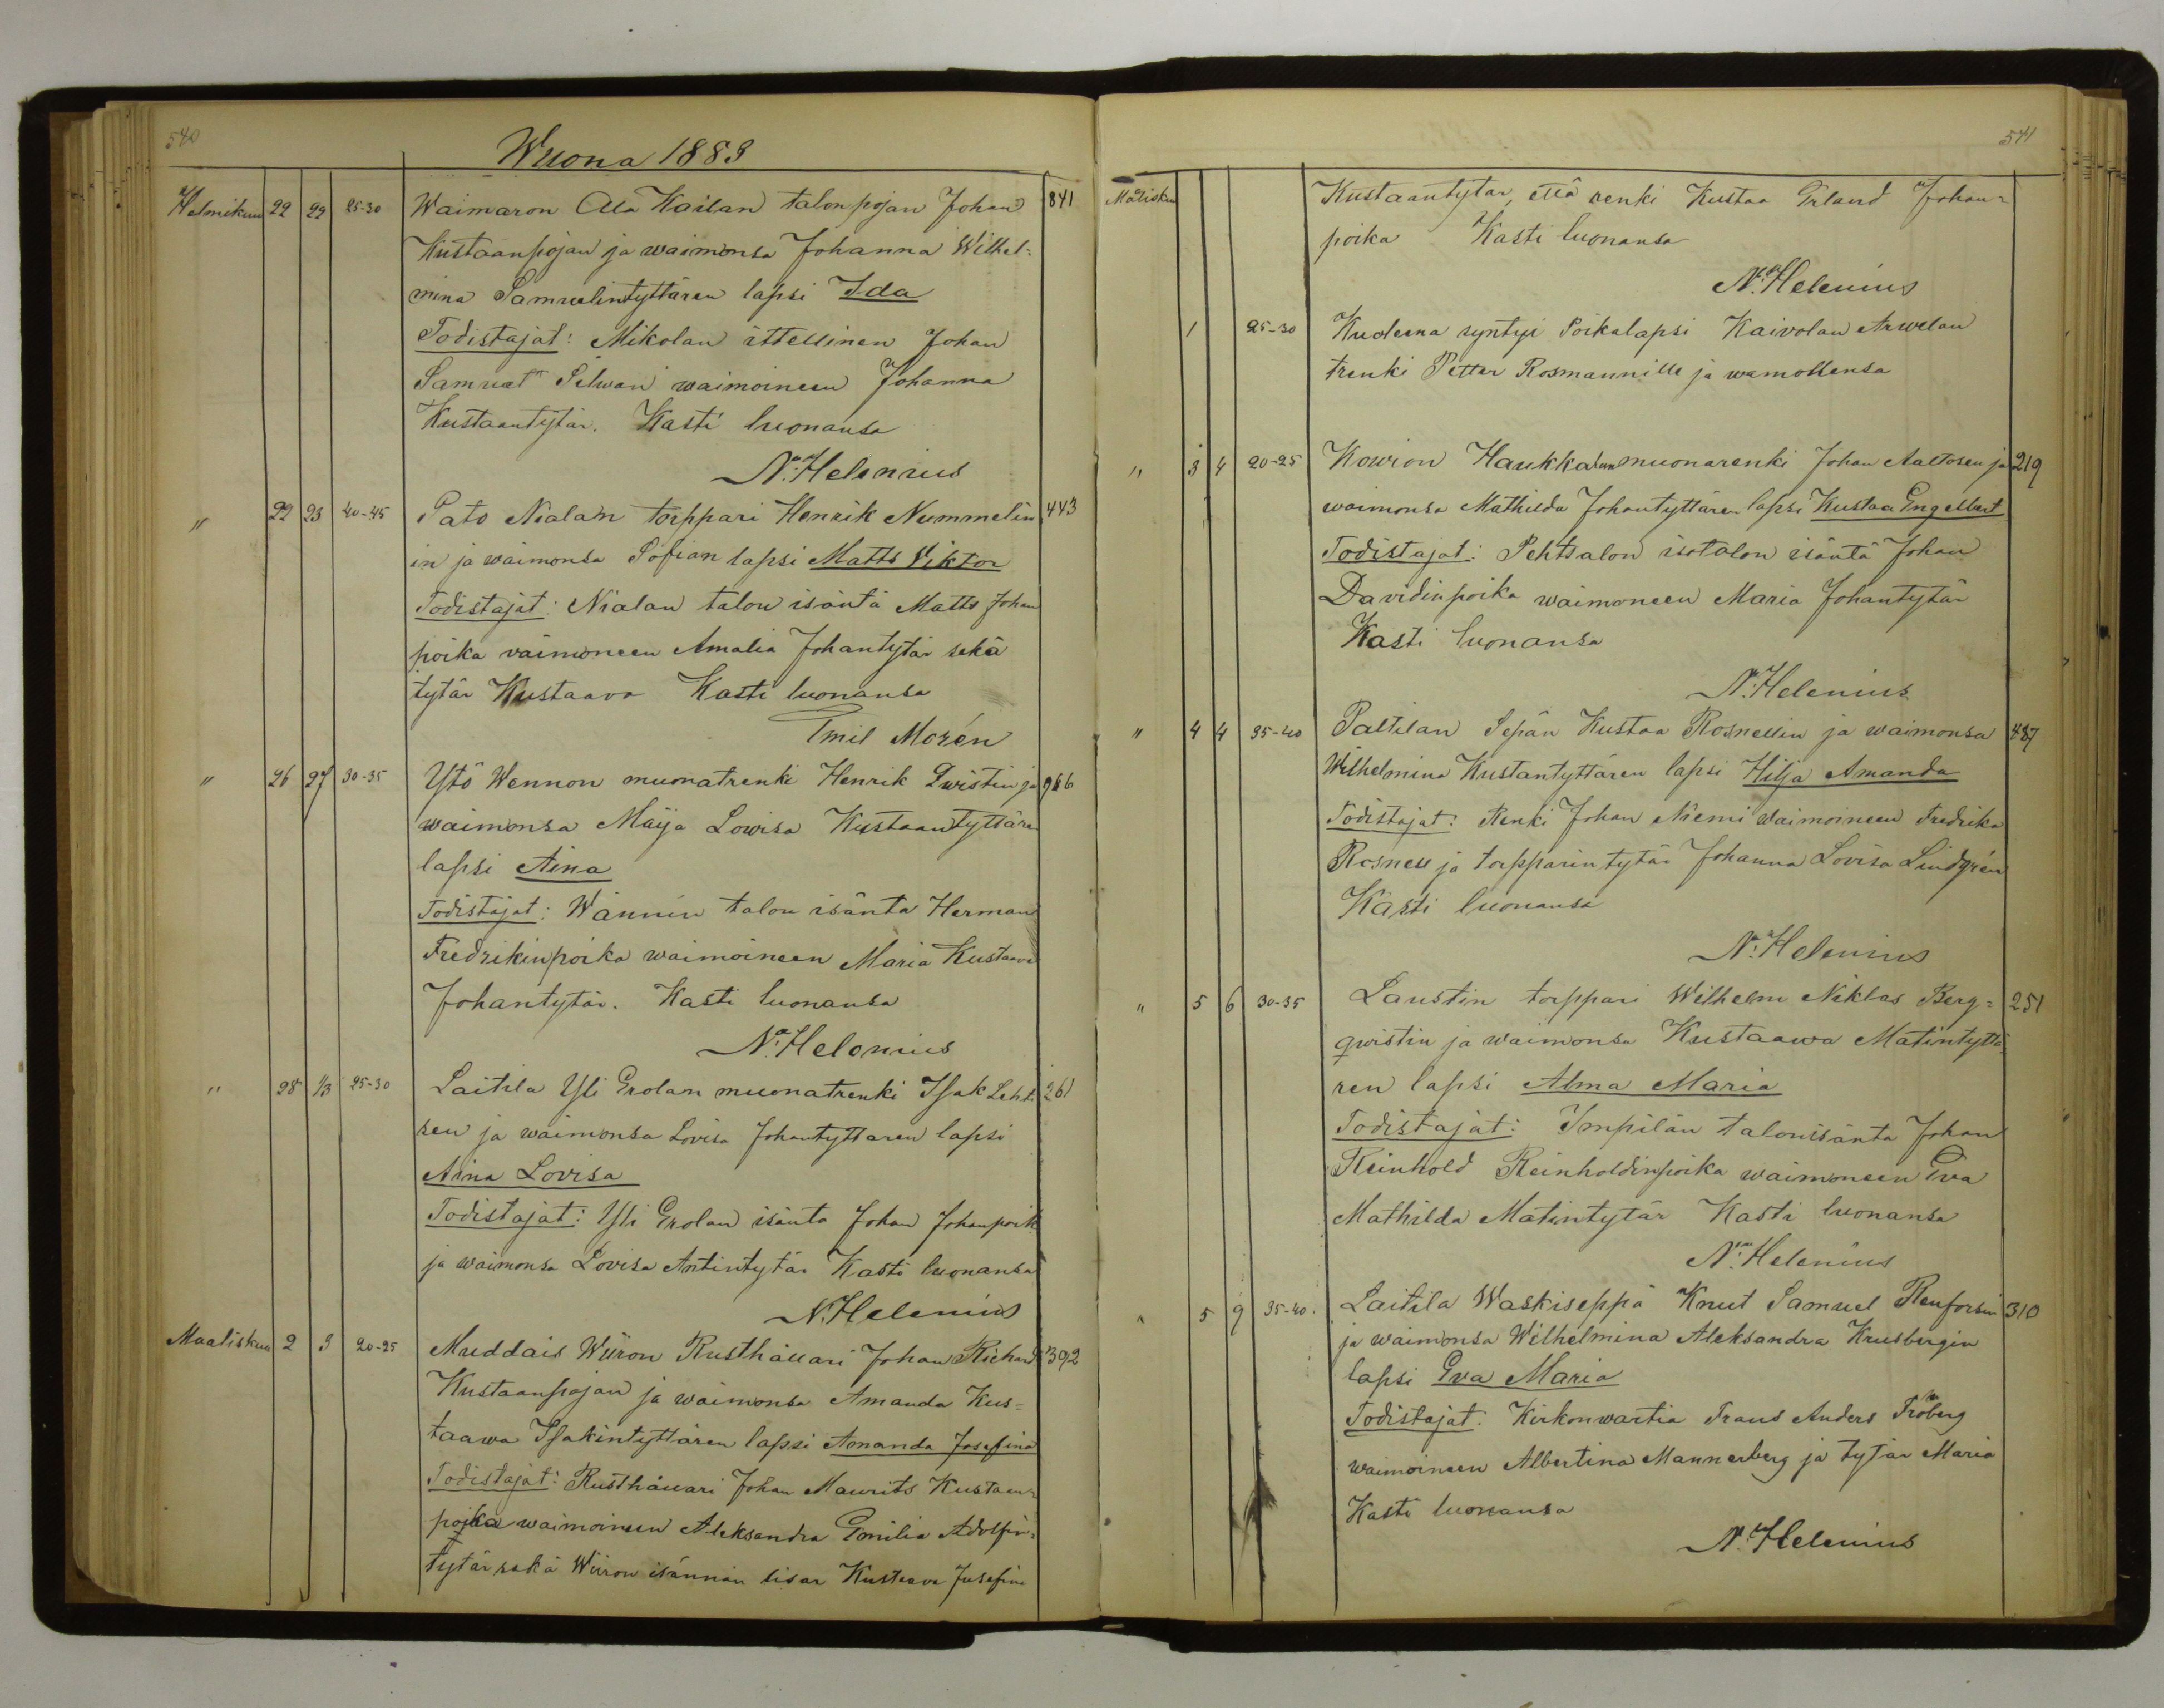 540
Wuona 1883
Helmikuu 22 23 25-30 Waimaron Ala Kailan talonpojan Johan 841
Kustaanpojan ja waimonsa Johanna Wilhel=
mina Samuelintyttären lapsi Ida
Todistajat: Mikolan ittellinen Johan
Samuel Selwan waimoineen Johanna
Kustaantytär. Kasti luonansa
N. Helenius
" 22 23 40-45 Pato Nialan torppari Henrik Nummelin 443
in ja waimonsa Sofian lapsi Matts Viktor
Todistajat: Nialan talon isäntä Matts Johan
poika vaimoneen Amalia Johantytär sekä
tytär Kustaava Kasti luonansa
Emil Morén
" 26 27 30-35 Ytö Wennon muonatrenki Henrik Qwistin ja 966
waimonsa Maija Lowisa Kustaantyttären
lapsi Aina
Todistajat: Wännin talon isäntä Herman
Fredrikinpoika waimoineen Maria Kustaava
Johantytär. Kasti luonansa
N. Helenius
" 28 1/3 25-30 Laitila Yli Erolan muonatrenki Isak Leht 261
sen ja waimonsa Lovisa Johantyttaren lapsi
Aina Lovisa
Todistajat: Yli Erolan isänta Johan Johanpoik
ja waimonsa Lovisa Antintytär Kasti luonansa
N. Helenius
Maaliskuu 2 3 20-25 Muddais Wiiron Rusthållari Johan Richard 392
Kustaanpojan ja waimonsa Amanda Kus=
taawa Isakintyttären lapsi Amanda Josefina
Todistajat: Rusthållari Johan Maurits Kustaan=
poika waimoineen Aleksandra Emilia Adolfin=
tytär sekä Wiiron isännän sisar Kustaava Josefina
541
Malisku Kustaantytär, että renki Kustaa Erland Johan=
poika Kasti luonansa
N. Helenius
1 25-30 Kuoleena syntyi Poikalapsi Kaivolan Arwelan
trenki Petter Rosmannille ja wamollensa
" 3 4 20-25 Kowion Haukkalan muonarenki Johan Aaltosen ja 219
waimonsa Mathilda Johantyttären lapsi Kustaa Engelbert
Todistajat: Pehtsalon isotalon isäntä Johan
Davidinpoika waimoneen Maria Johantytär
Kasti luonansa
N. Helenius
" 4 4 35-40 Paltilan Sepän Kustaa Rosnellin ja waimonsa 487
Wilhelmina Kustantyttären lapsi Hilja Amanda
Todistajat: Renki Johan Niemi waimoineen Fredrika
Rosnell ja torpparin tytär Johanna Lovisa Lindgrén
Kasti luonansa
N. Helenius
" 5 6 30-35 Laustin torppari Wilhelm Niklas Berg= 251
qwistin ja waimonsa Kustaawa Matintyttä
ren lapsi Alma Maria
Todistajat: Impilän talonisänta Johan
Reinhold Reinholdinpoika waimoneen Eva
Mathilda Matintytär Kasti luonansa
N. Helenius
" 5 9 35-40. Laitila Waskiseppä Knut Samuel Renforsin 310
ja waimonsa Wilhelmina Aleksandra Krusbergin
lapsi Eva Maria
Todistajat: Kirkonwartia Frans Anders Fröberg
waimoineen Albertina Mannerberg ja tytär Maria
Kasti luonansa
N. Helenius